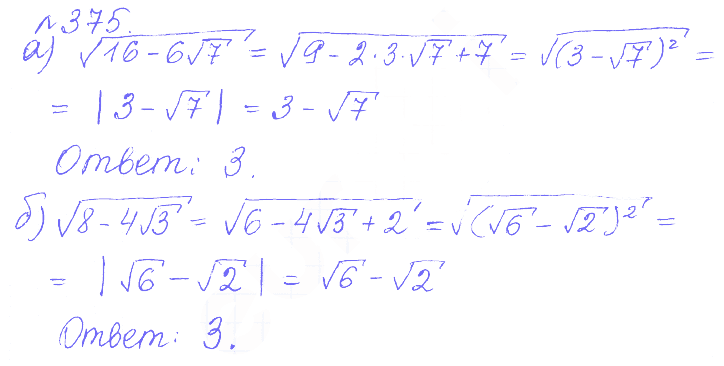 №375.
а) √(16-6√7) = √(9-2·3·√7+7) = √((3-√7)²) =
= |3-√7| = 3-√7
Ответ: 3.
б) √(8-4√3) = √(6-4√3+2) = √((√6-√2)²) =
= |√6-√2| = √6-√2
Ответ: 3.